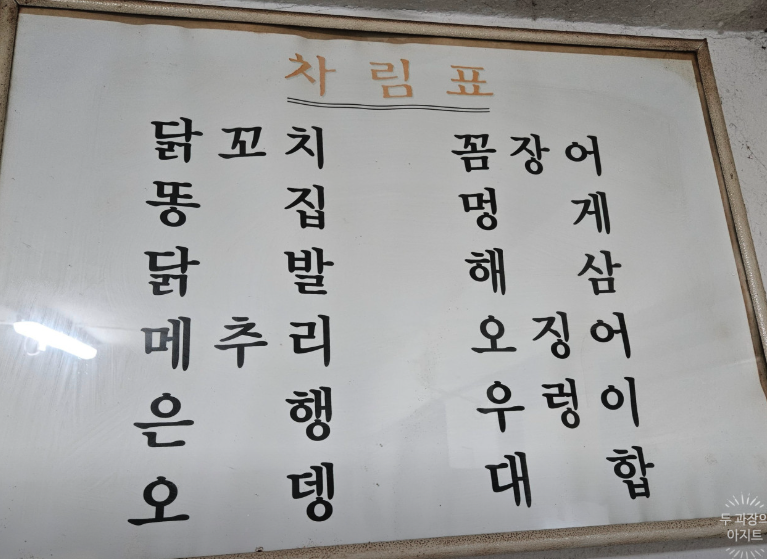 차림표
닭꼬치
똥집
닭발
메추리
은행
오뎅
꼼장어
멍게
해삼
오징어
우렁이
대합
두 과장의
아지트